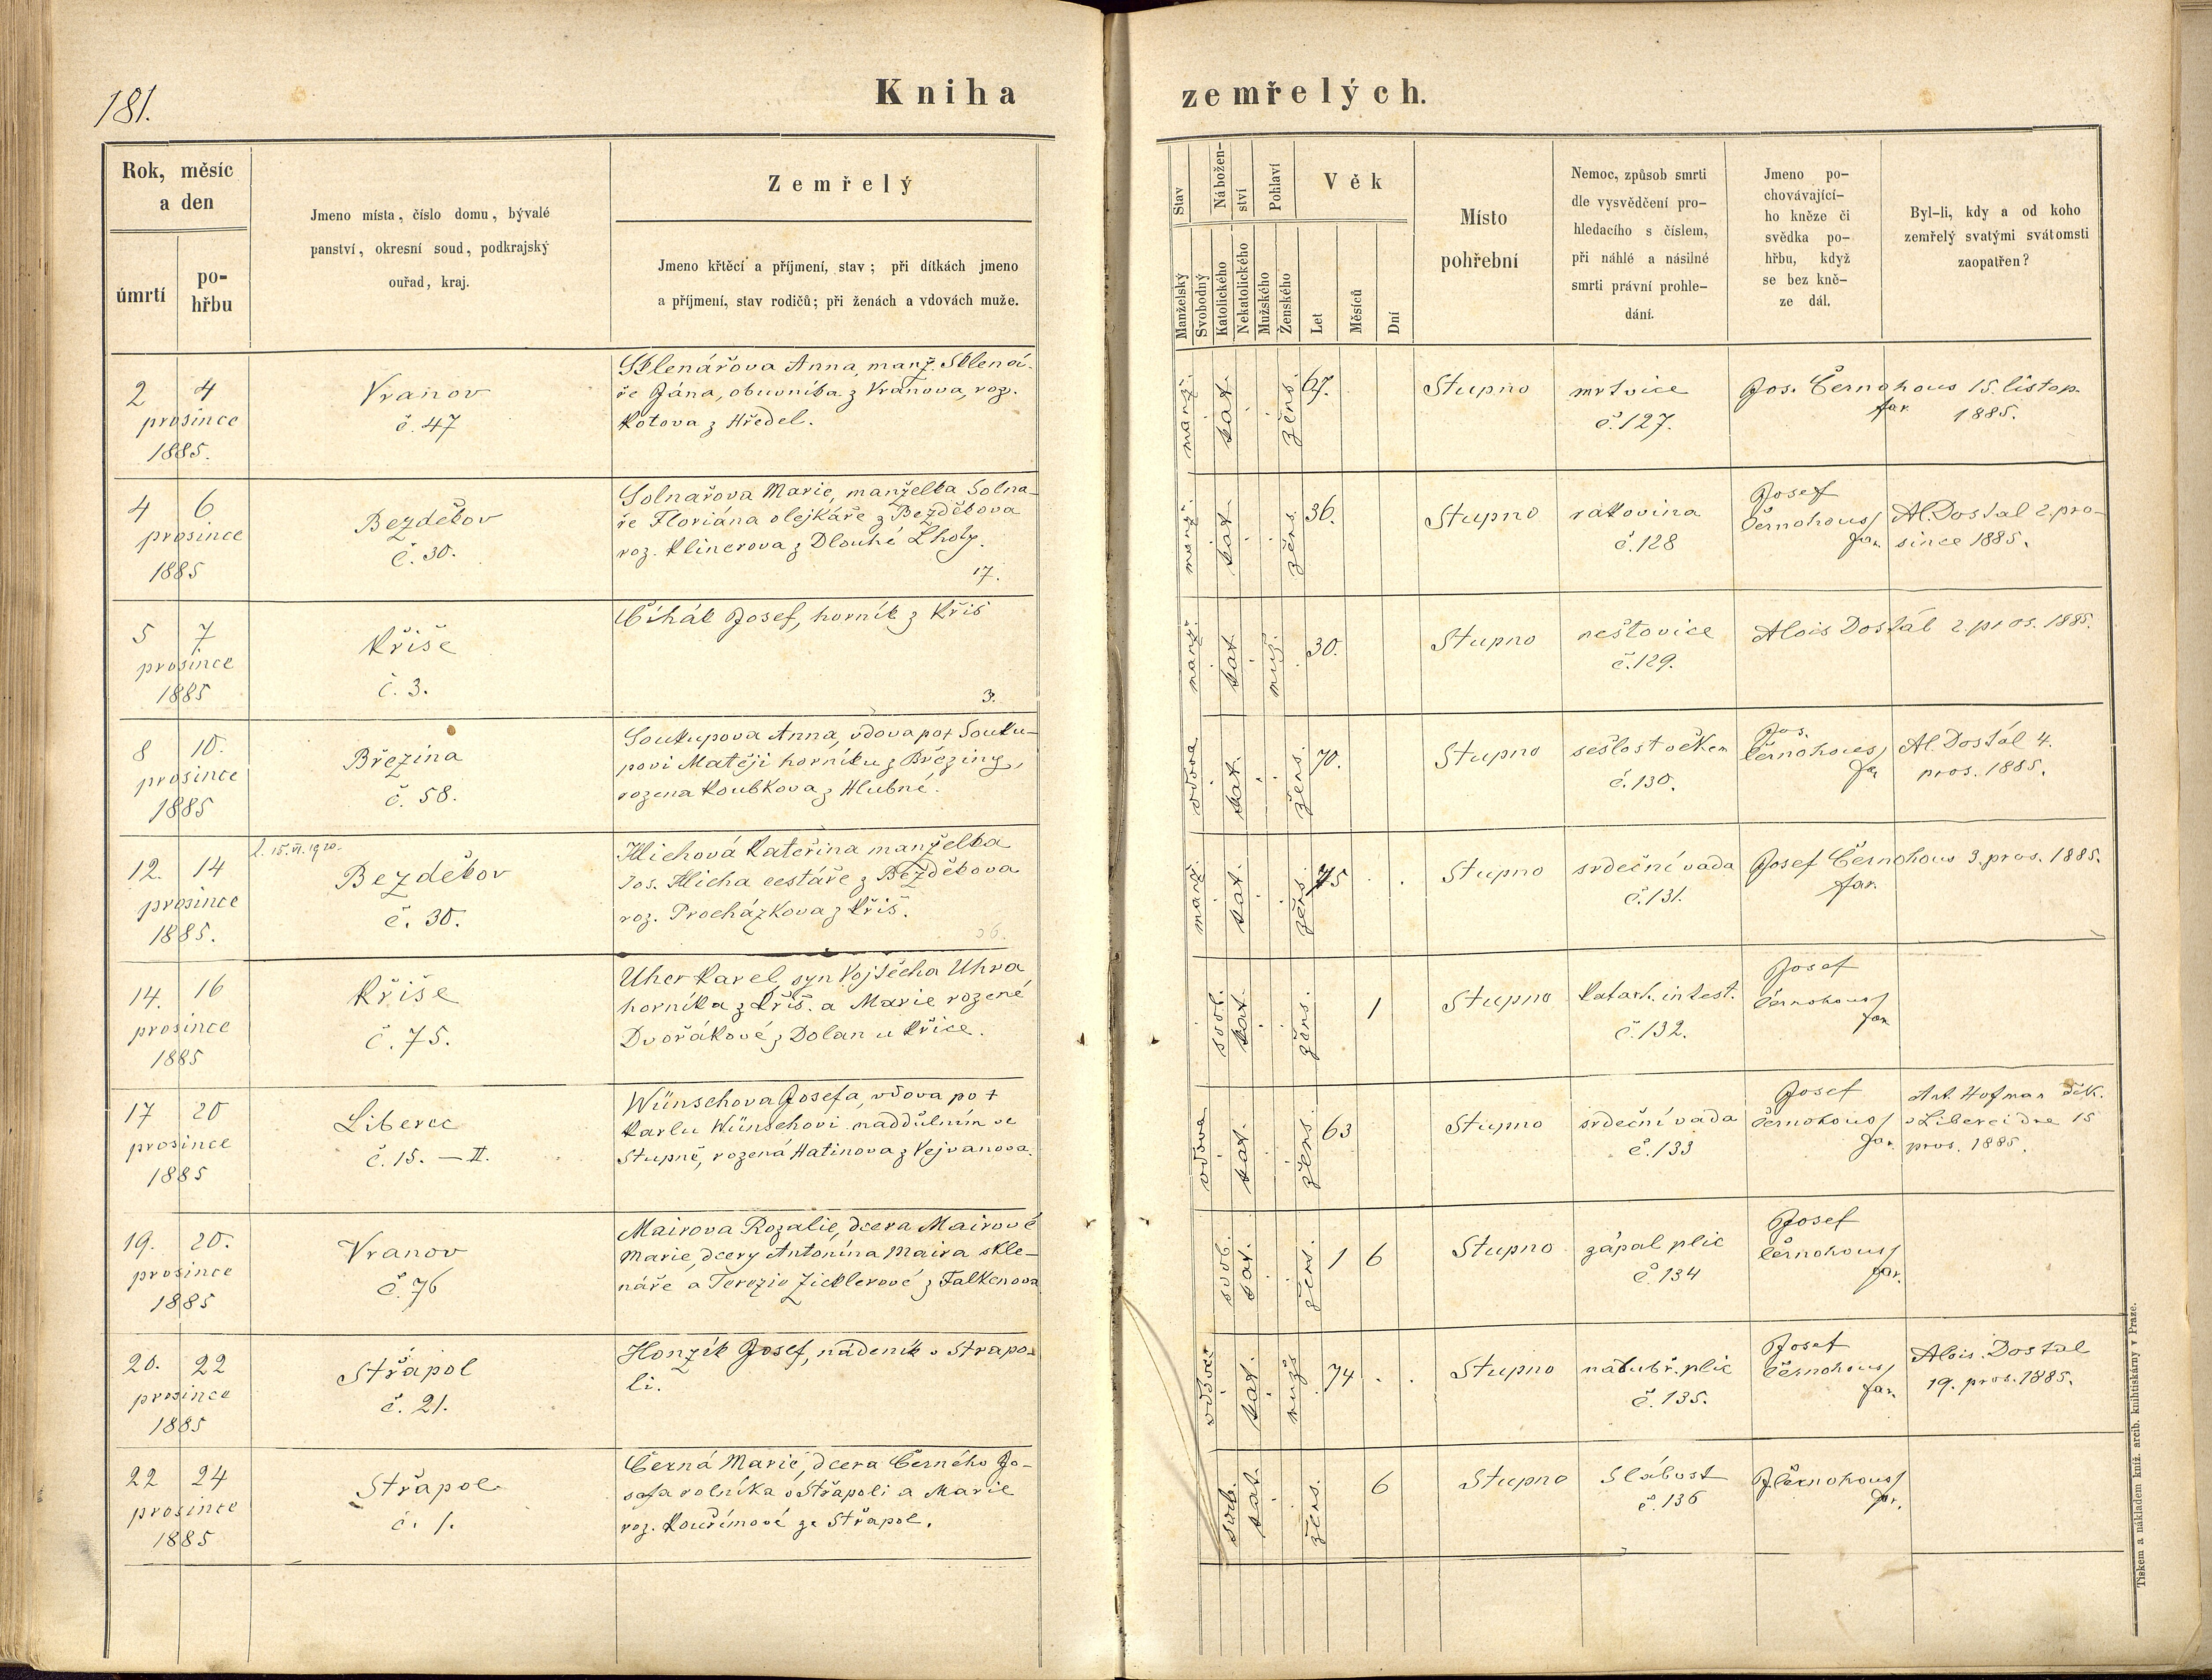 181.
Kniha zemřelých.
Rok, měsíc
a den
úmrtí
po-
hřbu
Jmeno místa, číslo domu, bývalé
panství, okresní soud, podkrajský
ouřad, kraj.
Zemřelý
Jmeno křtěcí a příjmení, stav; při dítkách jmeno
a příjmení, stav rodičů; při ženách a vdovách muže.
Stav
Manželský
Svobodný
Nábožen-
ství
Katolického
Nekatolického
Pohlaví
Mužského
Ženského
Věk
Let
Měsíců
Dní
Místo
pohřební
Nemoc, způsob smrti
dle vysvědčení pro-
hledacího s číslem,
při náhlé a násilné
smrti právní prohle-
dání.
Jmeno po-
chovávající-
ho kněze či
svědka po-
hřbu, když
se bez kně-
ze dál.
Byl-li, kdy a od koho
zemřelý svatými svátomsti
zaopatřen?
2 4
prosince
1885.
Vranov
č. 47
Sklenářova Anna, manž. Sklená-
ře Jána, obuvníka z Vranova, roz.
Kotova z Hředel.
manž. kat. žens. 67.
Stupno
mrtvice
č. 127.
Jos. Černohous
far.
15. listop.
1885.
4 6
prosince
1885
Bezděkov
č. 30.
Solnařova Marie, manželka Solna-
ře Floriána olejkáře z Bezděkova
roz. Klinerova z Dlouhé Lhoty.
17.
manž. kat. žens. 36.
Stupno
rakovina
č. 128
Josef
Černohous
far.
Al. Dostal 2. pro-
since 1885.
5 7
prosince
1885
Kříše
č. 3.
Čihák Josef, horník z Kříš
3.
manž. kat. muž. 30.
Stupno
neštovice
č. 129.
Alois Dostál 2. pros. 1885.
8 10.
prosince
1885
Březina
č. 58.
Soukupova Anna, vdova po † Souku-
povi Matěji horníku z Březiny,
rozena Koubkova z Hlubné.
vdova kat. žens. 70.
Stupno
sešlost věkem
č. 130.
Jos.
Černohous
far
Al. Dostál 4.
pros. 1885.
12. 14
prosince
1885.
l. 15. VI. 1920.
Bezděkov
č. 30.
Hlichová Kateřina manželka
Jos. Hlicha cestáře z Bezděkova
roz. Procházkova z Kříš.
36.
manž. kat. žens. 75 . .
Stupno
srdeční vada
č. 131.
Josef Černohous 3. pros. 1885.
far.
14. 16
prosince
1885
Kříše
č. 75.
Uher Karel, syn Vojtěcha Uhra
horníka z Kříš. a Marie rozené
Dvořákové z Dolan u Křice.
svob. kat. žens. 1
Stupno
katarh. intest.
č. 132.
Josef
Černohous
far
17 20
prosince
1885
Liberec
č. 15. – II.
Wünschova Josefa, vdova po †
Karlu Wünschovi naddůlním ve
Stupně, rozená Hatinova z Vejvanova.
vdova kat. žens. 63
Stupno
srdeční vada
č. 133
Josef
Černohous
far.
Ant. Hofman děk.
v Liberci dne 15
pros. 1885.
19. 20.
prosince
1885
Vranov
č. 76
Mairova Rozalie, dcera Mairové
Marie, dcery Antonína Maira skle-
náře a Terezie Zicklerové z Falkenova
svob. kat. žens. 1 6
Stupno
zápal plic
č. 134
Josef
Černohous
far.
20. 22
prosince
1885
Střapol
č. 21.
Honzík Josef, nádeník v Strapo-
li.
vdovec kat. muž 74 . .
Stupno
nádubř. plic
č. 135.
Josef
Černohous
far.
Alois Dostal
19. pros. 1885.
22 24
prosince
1885
Střapol
č. 1.
Černá Marie, dcera Černého Jo-
sefa rolníka v Střapoli a Marie
roz. Kouřimové ze Střapol.
svob. kat. žens. 6
Stupno
Slábost
č. 136
J. Černohous
far.
Tiskem a nákladem kníž. arcib. knihtiskárny v Praze.